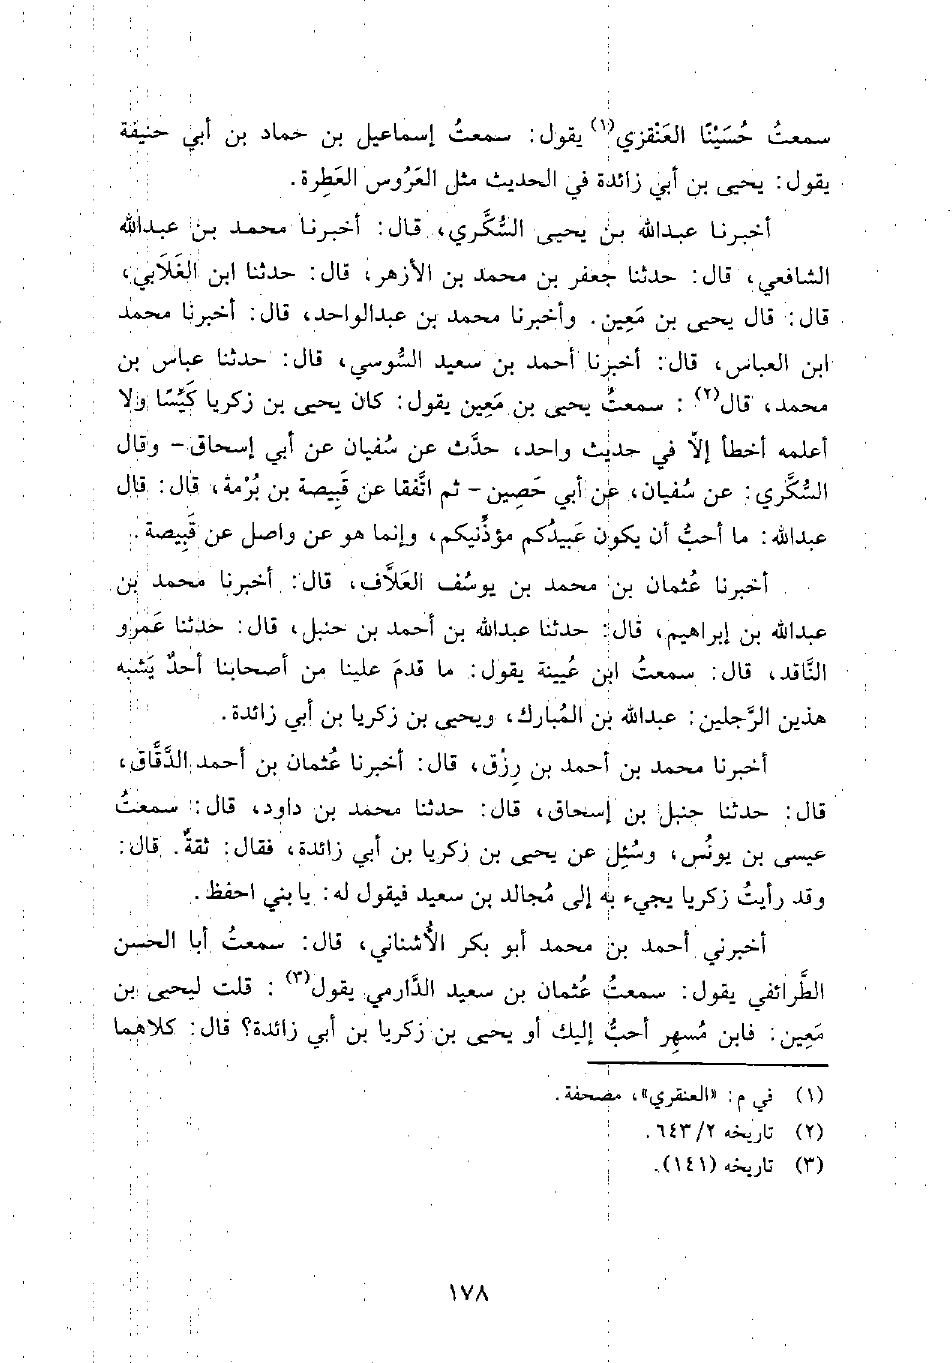 سمعتُ حُسَيْنًا العَنْقزي(١) يقول: سمعتُ إسماعيل بن حماد بن أبي حنيفة
يقول: يحيى بن أبي زائدة في الحديث مثل العَرُوس العَطِرة.
أخبرنا عبدالله بن يحيى السُّكَّري، قال: أخبرنا محمد بن عبدالله
الشافعي، قال: حدثنا جعفر بن محمد بن الأزهر، قال: حدثنا ابن الغَلَابي،
قال: قال يحيى بن مَعِين. وأخبرنا محمد بن عبدالواحد، قال: أخبرنا محمد
ابن العباس، قال: أخبرنا أحمد بن سعيد السُّوسي، قال: حدثنا عباس بن
محمد، قال(٢) : سمعتُ يحيى بن مَعِين يقول: كان يحيى بن زكريا كَيِّسًا ولا
أعلمه أخطأ إلَّا في حديث واحد، حدَّث عن سُفيان عن أبي إسحاق - وقال
السُّكَّري: عن سُفيان، عن أبي حَصِين - ثم اتَّفقا عن قَبِيصة بن بُرْمة، قال: قال
عبدالله: ما أحبُّ أن يكون عَبيدُكم مؤذِّنيكم، وإنما هو عن واصل عن قَبِيصة.
أخبرنا عُثمان بن محمد بن يوسُف العَلَّاف، قال: أخبرنا محمد بن
عبدالله بن إبراهيم، قال: حدثنا عبدالله بن أحمد بن حنبل، قال: حدثنا عَمرو
النَّاقد، قال: سمعتُ ابن عُيينة يقول: ما قدمَ علينا من أصحابنا أحدٌ يَشبه
هذين الرَّجلين: عبدالله بن المُبارك، ويحيى بن زكريا بن أبي زائدة.
أخبرنا محمد بن أحمد بن رِزْق، قال: أخبرنا عُثمان بن أحمد الدَّقَّاق،
قال: حدثنا حنبل بن إسحاق، قال: حدثنا محمد بن داود، قال: سمعتُ
عيسى بن يونُس، وسُئِل عن يحيى بن زكريا بن أبي زائدة، فقال: ثقةٌ. قال:
وقد رأيتُ زكريا يجيء به إلى مُجالد بن سعيد فيقول له: يا بني احفظ.
أخبرني أحمد بن محمد أبو بكر الأُشناني، قال: سمعتُ أبا الحسن
الطَّرائفي يقول: سمعتُ عُثمان بن سعيد الدَّارمي يقول(٣) : قلت ليحيى بن
مَعِين: فابن مُسهِر أحبُّ إليك أو يحيى بن زكريا بن أبي زائدة؟ قال: كلاهما
(١) في م: «العنقري»، مصحفة.
(٢) تاريخه ٢/ ٦٤٣.
(٣) تاريخه (١٤١).
١٧٨